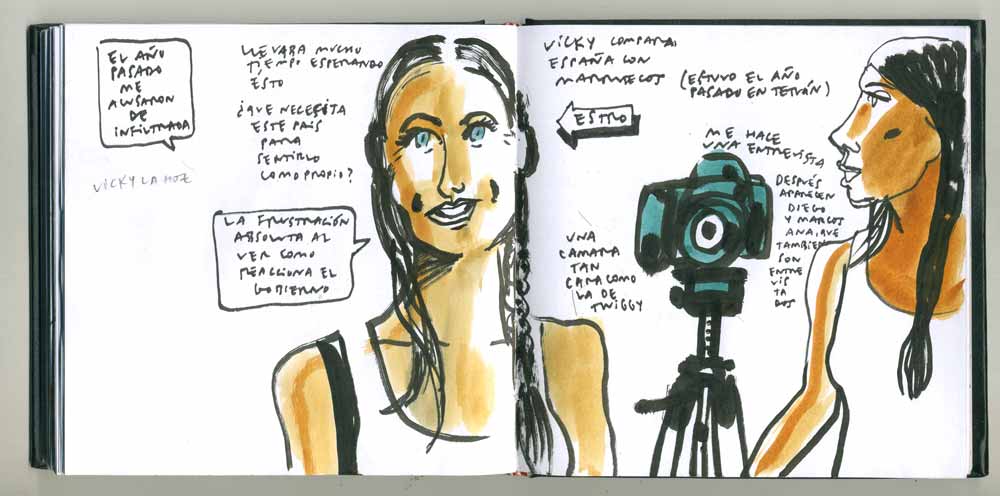 EL AÑO
PASADO
ME
ACUSARON
DE
INFILTRADA
VICKY LA HOZ
LLEVABA MUCHO
TIEMPO ESPERANDO
ÉSTO
¿QUE NECESITA
ESTE PAÍS
PARA
SENTIRLO
COMO PROPIO?
LA FRUSTRACIÓN
ABSOLUTA AL
VER COMO
REACCIONA EL
GOBIERNO
VICKY COMPARA
ESPAÑA CON
MARRUECOS (ESTUVO EL AÑO
PASADO EN TETUÁN)
ESTILO
ME HACE
UNA ENTREVISTA
DESPUÉS
APARECEN
DIEGO
Y MARCOS
ANA, QUE
TAMBIEN
SON
ENTRE
VIS
TA
DOS
UNA
CÁMARA
TAN
CARA COMO
LA DE
TWIGGY